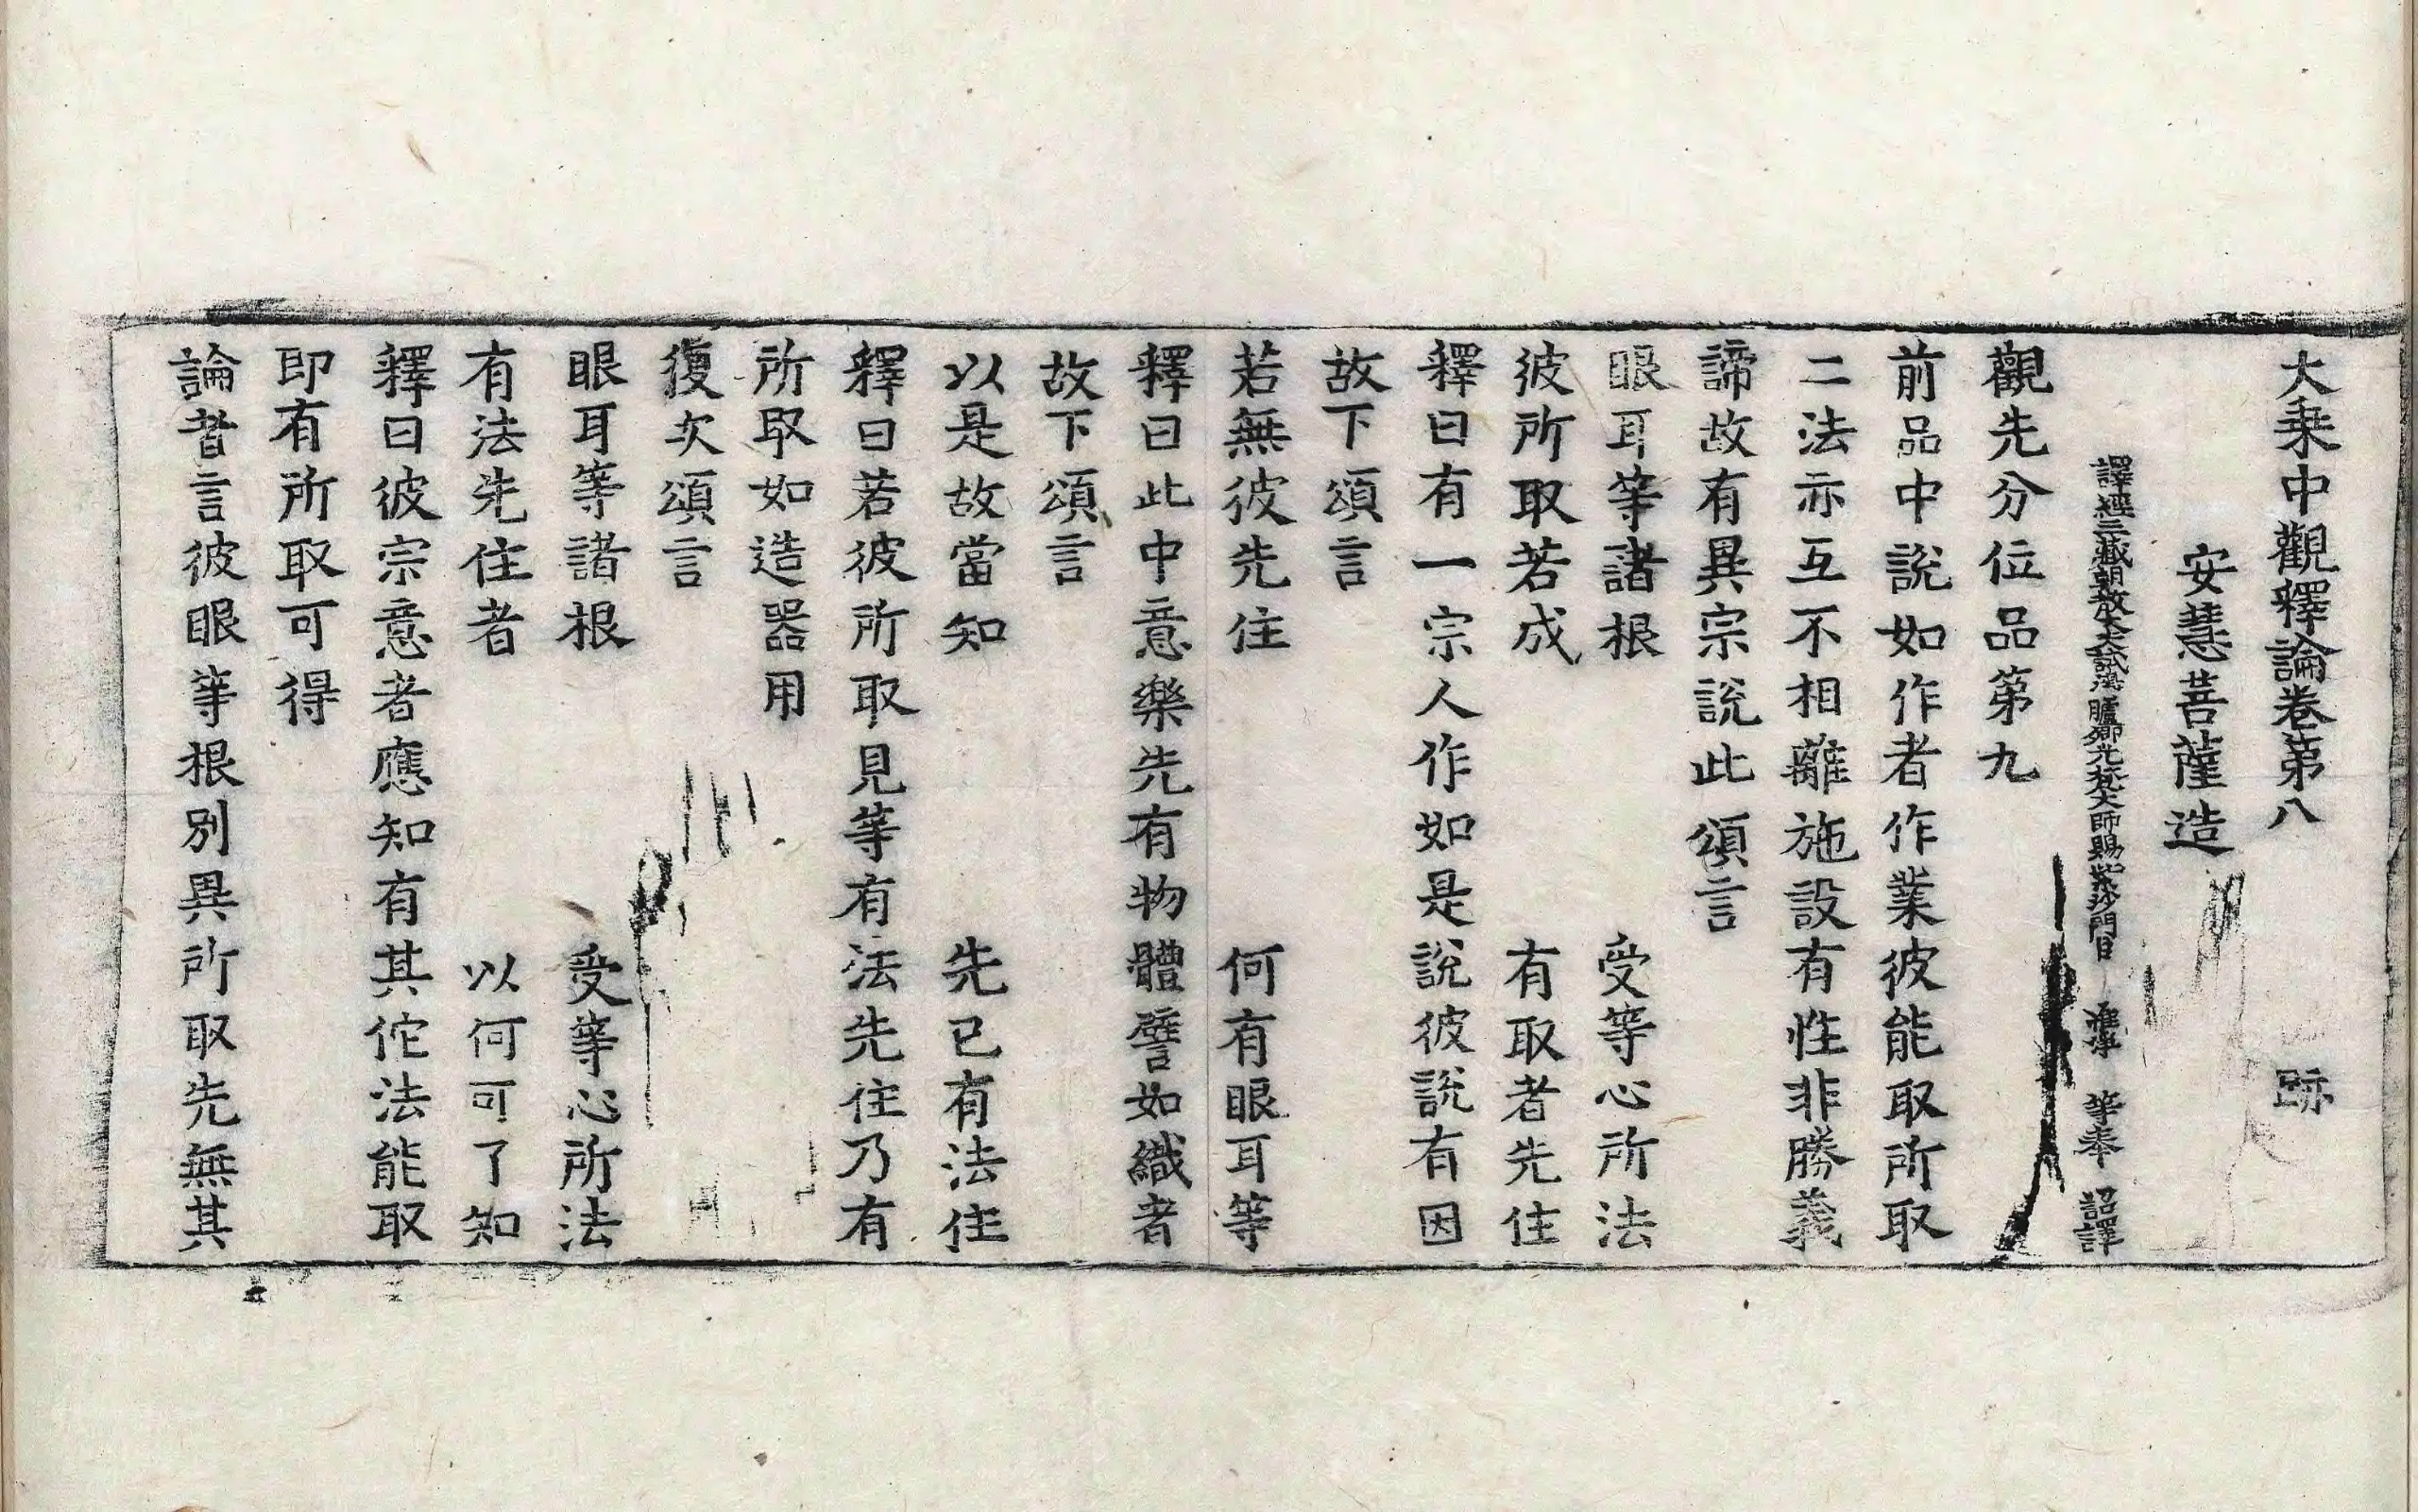 大乗中觀釋論卷第八 跡
安慧菩薩造
譯經三藏朝散大夫試鴻臚卿光梵大師賜紫沙門臣 惟淨 等奉 詔譯
觀先分位品第九
前品中說如作者作業彼能取所取
二法亦互不相離施設有性非勝義
諦故有異宗說此頌言
眼耳等諸根 受等心所法
彼所取若成 有取者先住
釋曰有一宗人作如是說彼說有因
故下頌言
若無彼先住 何有眼耳等
釋曰此中意樂先有物體譬如織者
故下頌言
以是故當知 先已有法住
釋曰若彼所取見等有法先住乃有
所取如造器用
復次頌言
眼耳等諸根 受等心所法
有法先住者 以何可了知
釋曰彼宗意者應知有其佗法能取
即有所取可得
論者言彼眼等根別異所取先無其